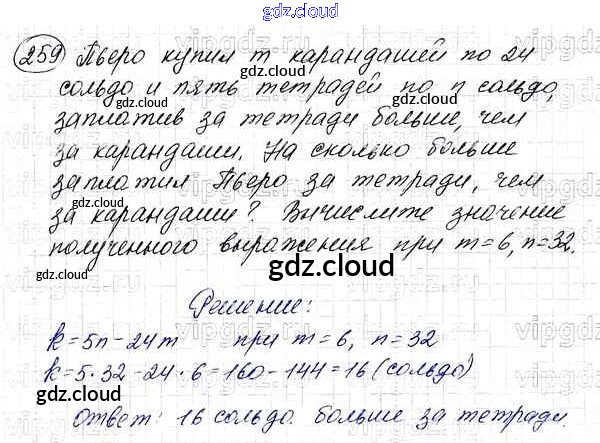 gdz.cloud
259 Пьеро купил m карандашей по 24
сольдо и пять тетрадей по n сольдо,
заплатив за тетради больше, чем
за карандаши. На сколько больше
заплатил Пьеро за тетради, чем
за карандаши? Вычислите значение
полученного выражения при m=6, n=32.
gdz.cloud
Решение:
k=5n-24m при m=6, n=32
k=5·32-24·6=160-144=16 (сольдо)
Ответ: 16 сольдо больше за тетради.